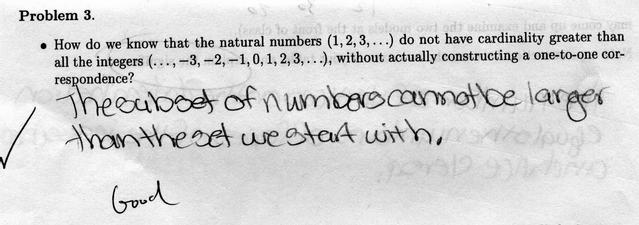 Problem 3.
• How do we know that the natural numbers (1, 2, 3, . . .) do not have cardinality greater than
all the integers (. . . , −3, −2, −1, 0, 1, 2, 3, . . .), without actually constructing a one-to-one cor-
respondence?
The subset of numbers cannot be larger
than the set we start with.
Good